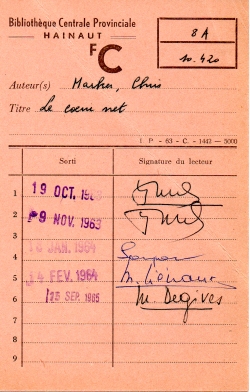 Bibliothèque Centrale Provinciale
HAINAUT
FC
8A
10.420
Auteur(s) Marker, Chris
Titre Le cœur net
1 P - 63 - C. - 1442 - 5000
Sorti Signature du lecteur
1 19 OCT. 1963
2 -9 NOV. 1963
3 JAN. 1964
4
5 FEV. 1964
6 25 SEP. 1965 M. Degives
7
8
9